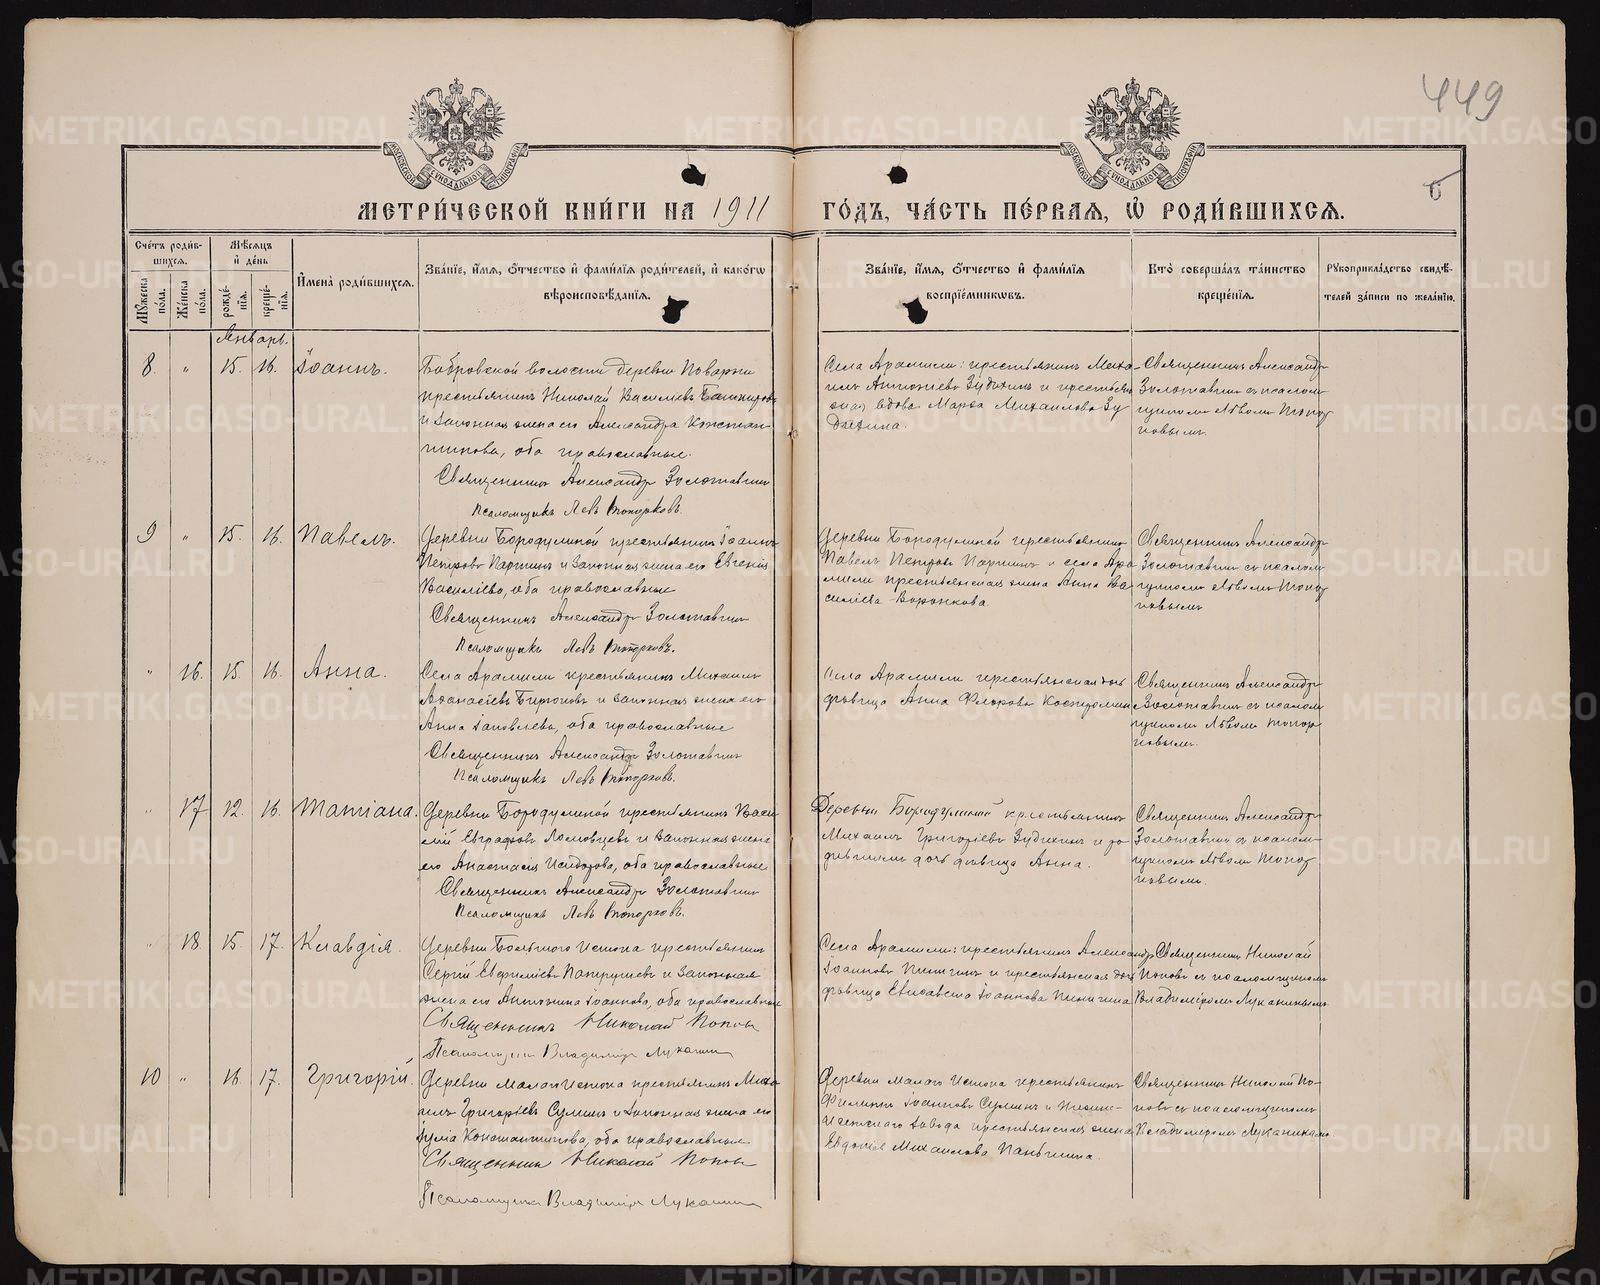 449
5
МЕТРИ́ЧЕСКОЙ КНИ́ГИ НА 1911 ГО́ДЪ, ЧА́СТЬ ПЕ́РВАЯ, Ѡ РОДИ́ВШИХСЯ.
Сче́тъ роди́в-
шихся.
Мѣ́сяцъ
и҆ де́нь
Мꙋ́жеска по́ла.
Же́нска по́ла.
рожде́-нїя.
креще́-нїя.
И҆мена̀ роди́вшихся.
Зва́нїе, и҆́мя, ѻ҆́тчество и҆ фами́лїя роди́телей, и҆ како́гѡ
вѣроисповѣ́данїя.
Зва́нїе, и҆́мя, ѻ҆́тчество и҆ фами́лїя
воспрїе́мникѡвъ.
Кто̀ соверша́лъ та́инство
креще́нїя.
Рꙋкоприкла́дство свидѣ́-
телей за́писи по жела́нїю.
Январь.
8. " 15. 16. Іоаннъ.
Бобровской волости деревни Поварни
крестьянинъ Николай Василіевъ Башкировъ
и законная жена его Александра Констан-
тинова, оба православные.
Священникъ Александръ Золотавинъ
Псаломщикъ Левъ Топорковъ.
Села Арамили: крестьянинъ Миха
илъ Антоніевъ Зудихинъ и крестьян
ская вдова Марѳа Михаилова Зу
дихина.
Священникъ Александръ
Золотавинъ съ псалом
щикомъ Львомъ Топор
ковымъ.
9 " 15. 16. Павелъ.
Деревни Бородулиной крестьянинъ Іоаннъ
Петровъ Паршинъ и законная жена его Евгенія
Василіева, оба православные
Священникъ Александръ Золотавинъ
Псаломщикъ Левъ Топорковъ.
Деревни Бородулиной крестьянинъ
Павелъ Петровъ Паршинъ и села Ара
мили крестьянская жена Анна Ва
силіева Воронкова.
Священникъ Александръ
Золотавинъ съ псалом
щикомъ Львомъ Топор
ковымъ
" 16. 15. 16. Анна.
Села Арамили крестьянинъ Михаилъ
Аѳанасіевъ Бирюковъ и законная жена его
Анна Іаковлева, оба православные
Священникъ Александръ Золотавинъ
Псаломщикъ Левъ Топорковъ.
Села Арамили крестьянская дочь
дѣвица Анна Флорова Костромина
Священникъ Александръ
Золотавинъ съ псалом
щикомъ Львомъ Топор
ковымъ.
" 17 12. 16. Татіана.
Деревни Бородулиной крестьянинъ Васи
лій Евграфовъ Ломовцевъ и законная жена
его Анастасія Исидорова, оба православные
Священникъ Александръ Золотавинъ
Псаломщикъ Левъ Топорковъ.
Деревни Бородулиной крестьянинъ
Михаилъ Григоріевъ Зудихинъ и ро
дившимъ дочь дѣвица Анна.
Священникъ Александръ
Золотавинъ съ псалом-
щикомъ Львомъ Топор
ковымъ.
" 18 15. 17. Клавдія.
Деревни Большого Истока крестьянинъ
Сергій Евѳиміевъ Патрушевъ и законная
жена его Антонина Іоаннова, оба православные
Священникъ Николай Поповъ
Псаломщикъ Владиміръ Луканинъ
Села Арамили: крестьянинъ Александръ
Іоанновъ Пинигинъ и крестьянская дочь
дѣвица Елисавета Іоаннова Пинигина
Священникъ Николай
Поповъ съ псаломщикомъ
Владиміромъ Луканинымъ
10 " 16 17. Григорій.
Деревни Малаго Истока крестьянинъ Миха
илъ Григоріевъ Сулинъ и законная жена его
Іулія Константинова, оба православные
Священникъ Николай Поповъ
Псаломщикъ Владиміръ Луканинъ
Деревни Малаго Истока крестьянинъ
Филиппъ Іоанновъ Сулинъ и Нижне-
Исетскаго завода крестьянская жена
Евдокія Михаилова Паньшина.
Священникъ Николай По-
повъ съ псаломщикомъ
Владиміромъ Луканинымъ
METRIKI.GASO-URAL.RU